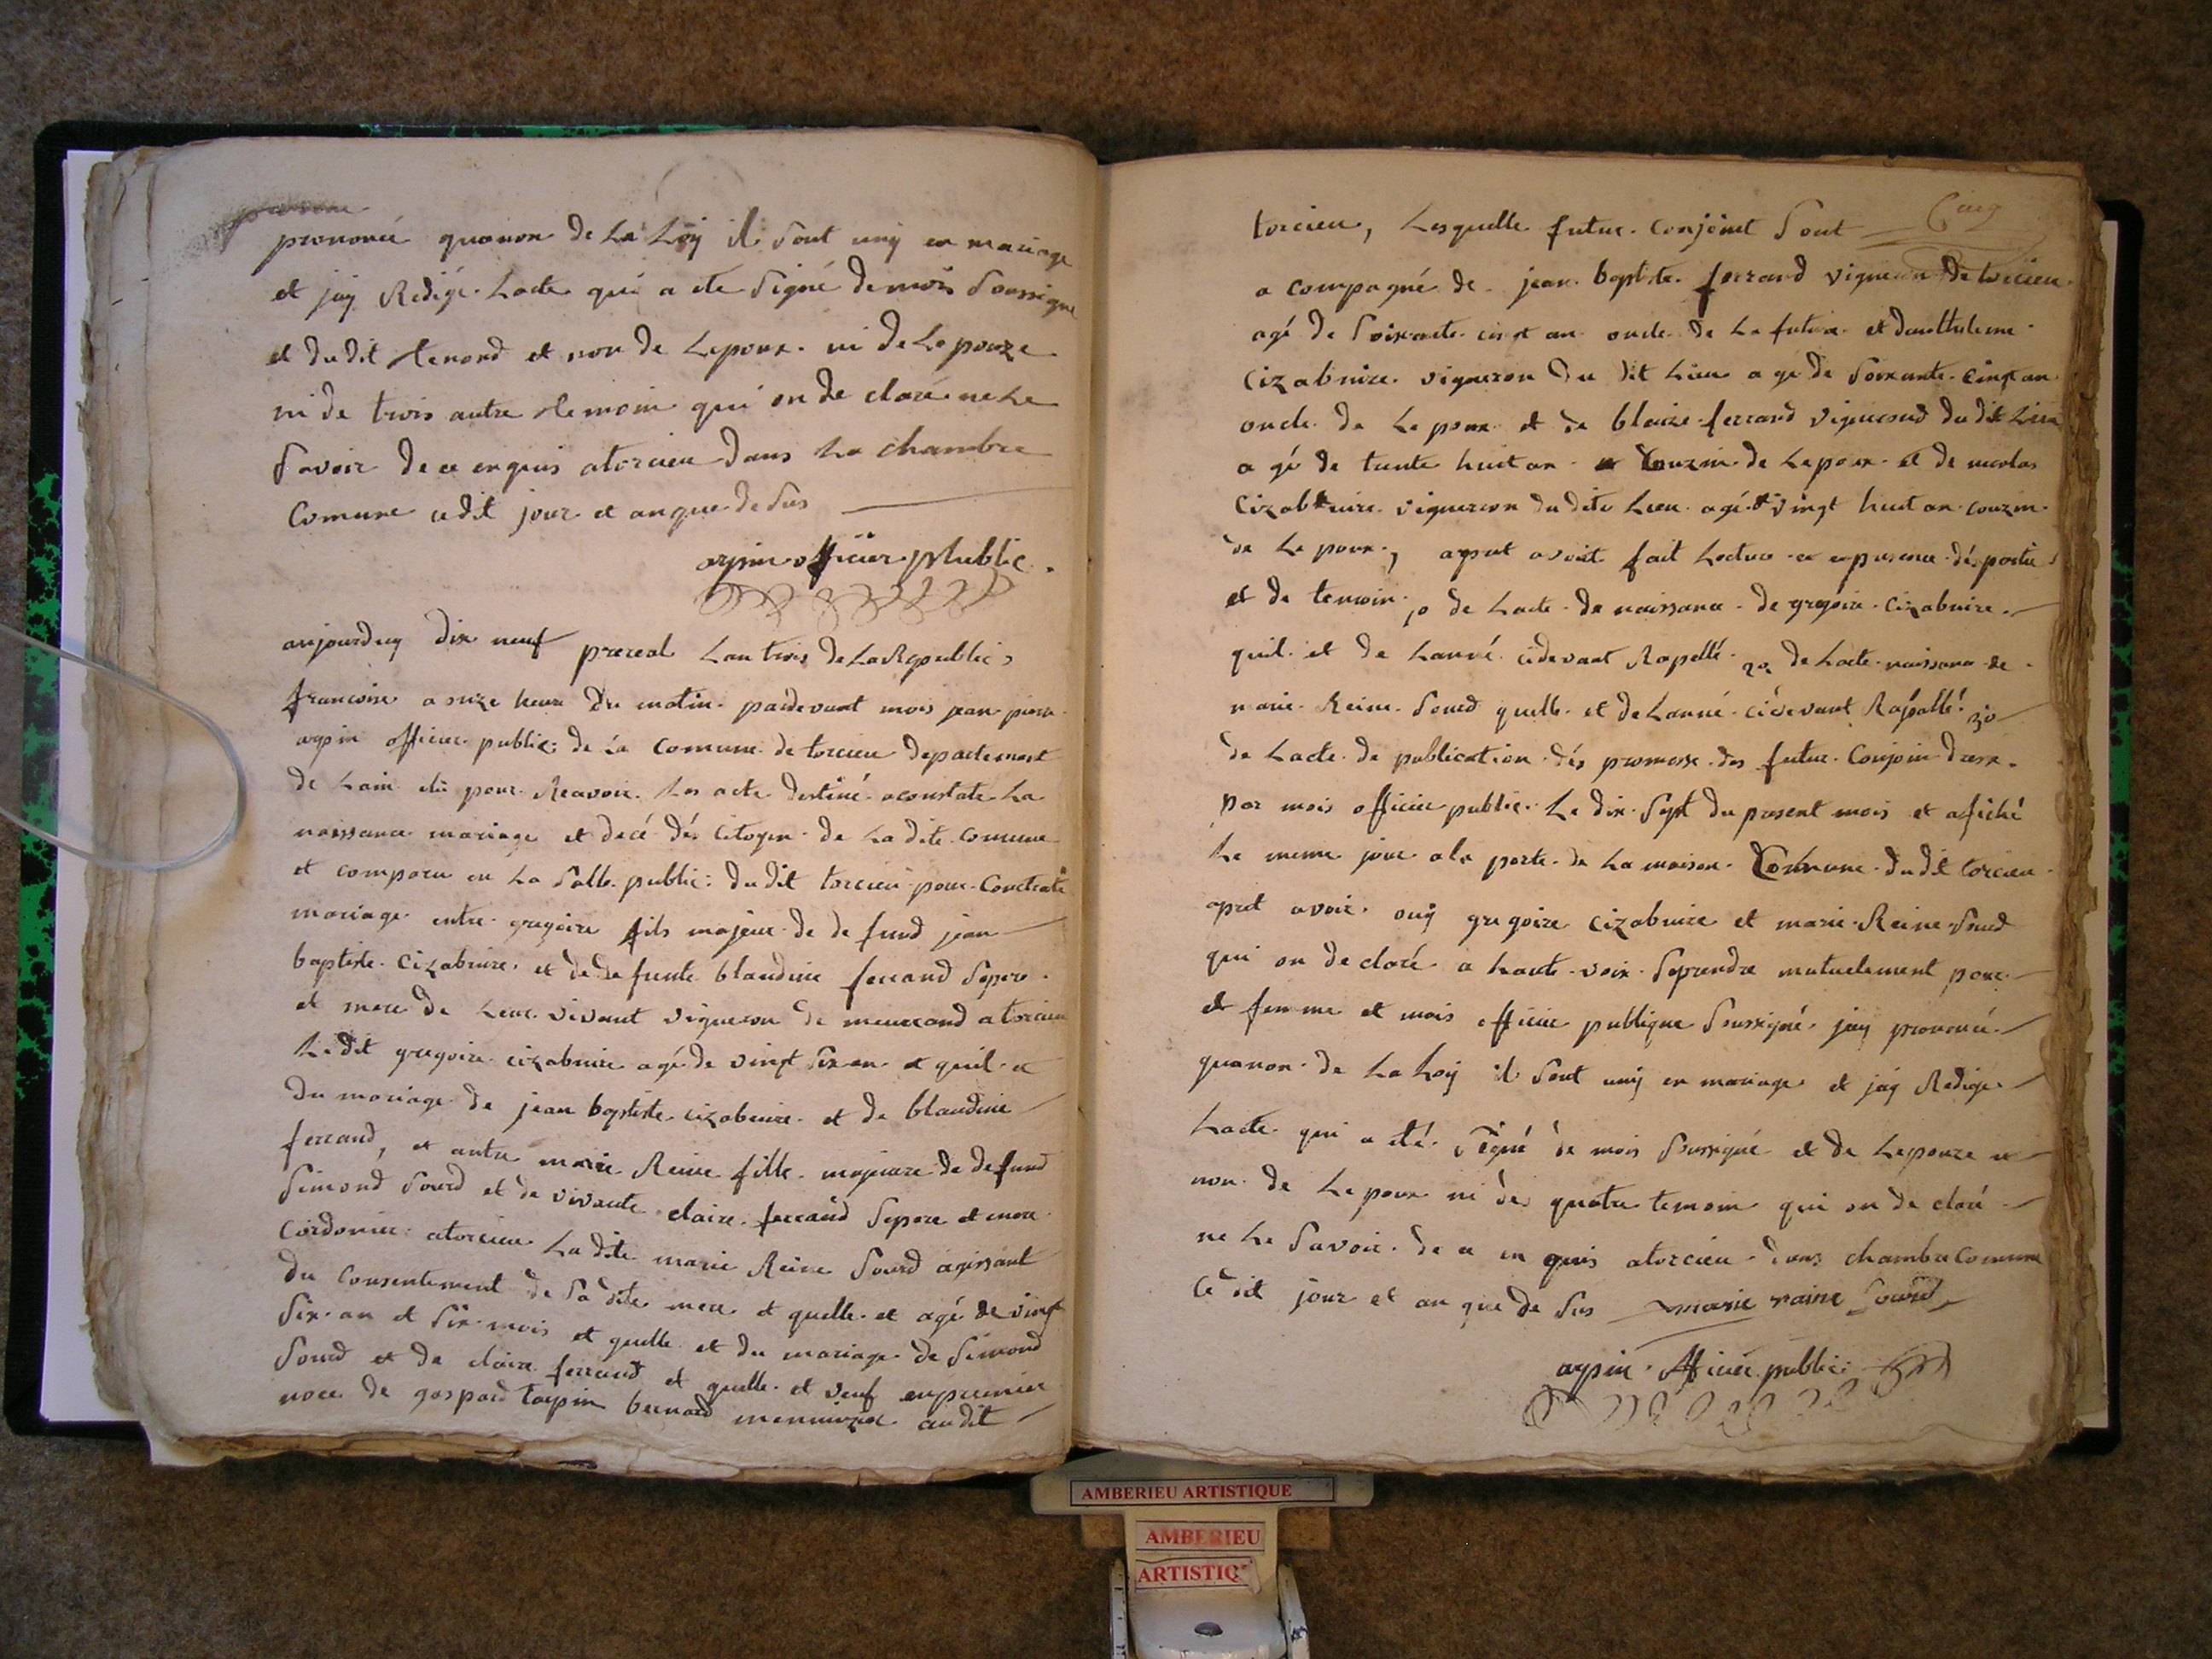 prononcé quanon de La Loy il sont uny en mariage
et jay Redigé Lacte qui a ete signé de mois soussigné
et du dit temond et non de Lepoux ni de Lepouze
ni de trois autre temoin qui on de claré ne Le
savoir de ce enquis atorcieu dans La chambre
Comune cedit jour et an que de sus
arpin officier publlic
aujourduy dix neuf prereal Lan trois de La Republic
francoise a onze heure du matin pardevant mois jean piere
arpin officier public de La Comune de torcieu departement
de Lain elu pour Reavoir Les acte destiné aconstate La
naissance mariage et decé dés Citoyen de La dite Comune
et comparu en La salle public du dit torcieu pour Contraté
mariage entre gregoire fils majeur de de fund jean
baptiste Cizabuire et de de funte blandine ferrand sepere
et mere de Leur vivant vigneron de meurand atorcieu
Le dit gregoire cizabuire agé de vingt six an et quil et
du mariage de jean baptiste cizabuire et de blandine
ferrand, et autre marie Reine fille majeure de defund
Simond Sourd et de vivante claire ferrand sepere et mere
Cordonier atorcieu La dite marie Reine Sourd agissant
du Consentement de sa dite mere et quelle et agé de vingt
six an et six mois et quelle et du mariage de Simond
Sourd et de claire ferrand et quelle et veuf enpremier
noce de gaspard bernard menuizier audit
torcieu, Lesquelle futur Conjoint sont
a compagné de jean baptiste ferrand vigneron de torcieu
agé de soixante cinq an oncle de La future et
Cizabuire vigneron du dit Lieu a gé de soixante Cinq an
oncle de Lepoux et de blaize ferrand vigneround du dit Lieu
a gé de trente huit an couzin de Lepoux et de nicolas
Cizabuire vigneron du dite Lieu agé vingt huit an couzin
de Lepoux, apret avoit fait Lecture en presence dés partie
et de temoin 1o de Lacte de naissance de gregoire Cizabuire
quil et de Lanné cidevant Rapellé 2o de Lacte naissance de
marie Reine Sourd quelle et de Lanné cidevant Rapallé 3o
de Lacte de publication dés promesse des futur Conjoin dresé
par mois officier public Le dix sept du present mois et afiché
Le meme jour ala porte de La maison Comune du dit torcieu
apret avoir ouy gregoire cizabuire et marie Reine Sourd
qui on declaré a haute voix seprendre mutuelement pour
et femme et mois officier publique soussigné jay prononcé
quanon de La Loy il sont uny en mariage et jay Redigé
Lacte qui a eté signé de mois soussigné et de Lepouze et
non de Lepoux ni des quatre temoin qui on de claré
ne Le savoir de ce en quis atorcieu dans chambre Comune
Ce dit jour et an que de sus marie raine Sourd
arpin officier public
AMBERIEU ARTISTIQUE
AMBERIEU
ARTISTIQ